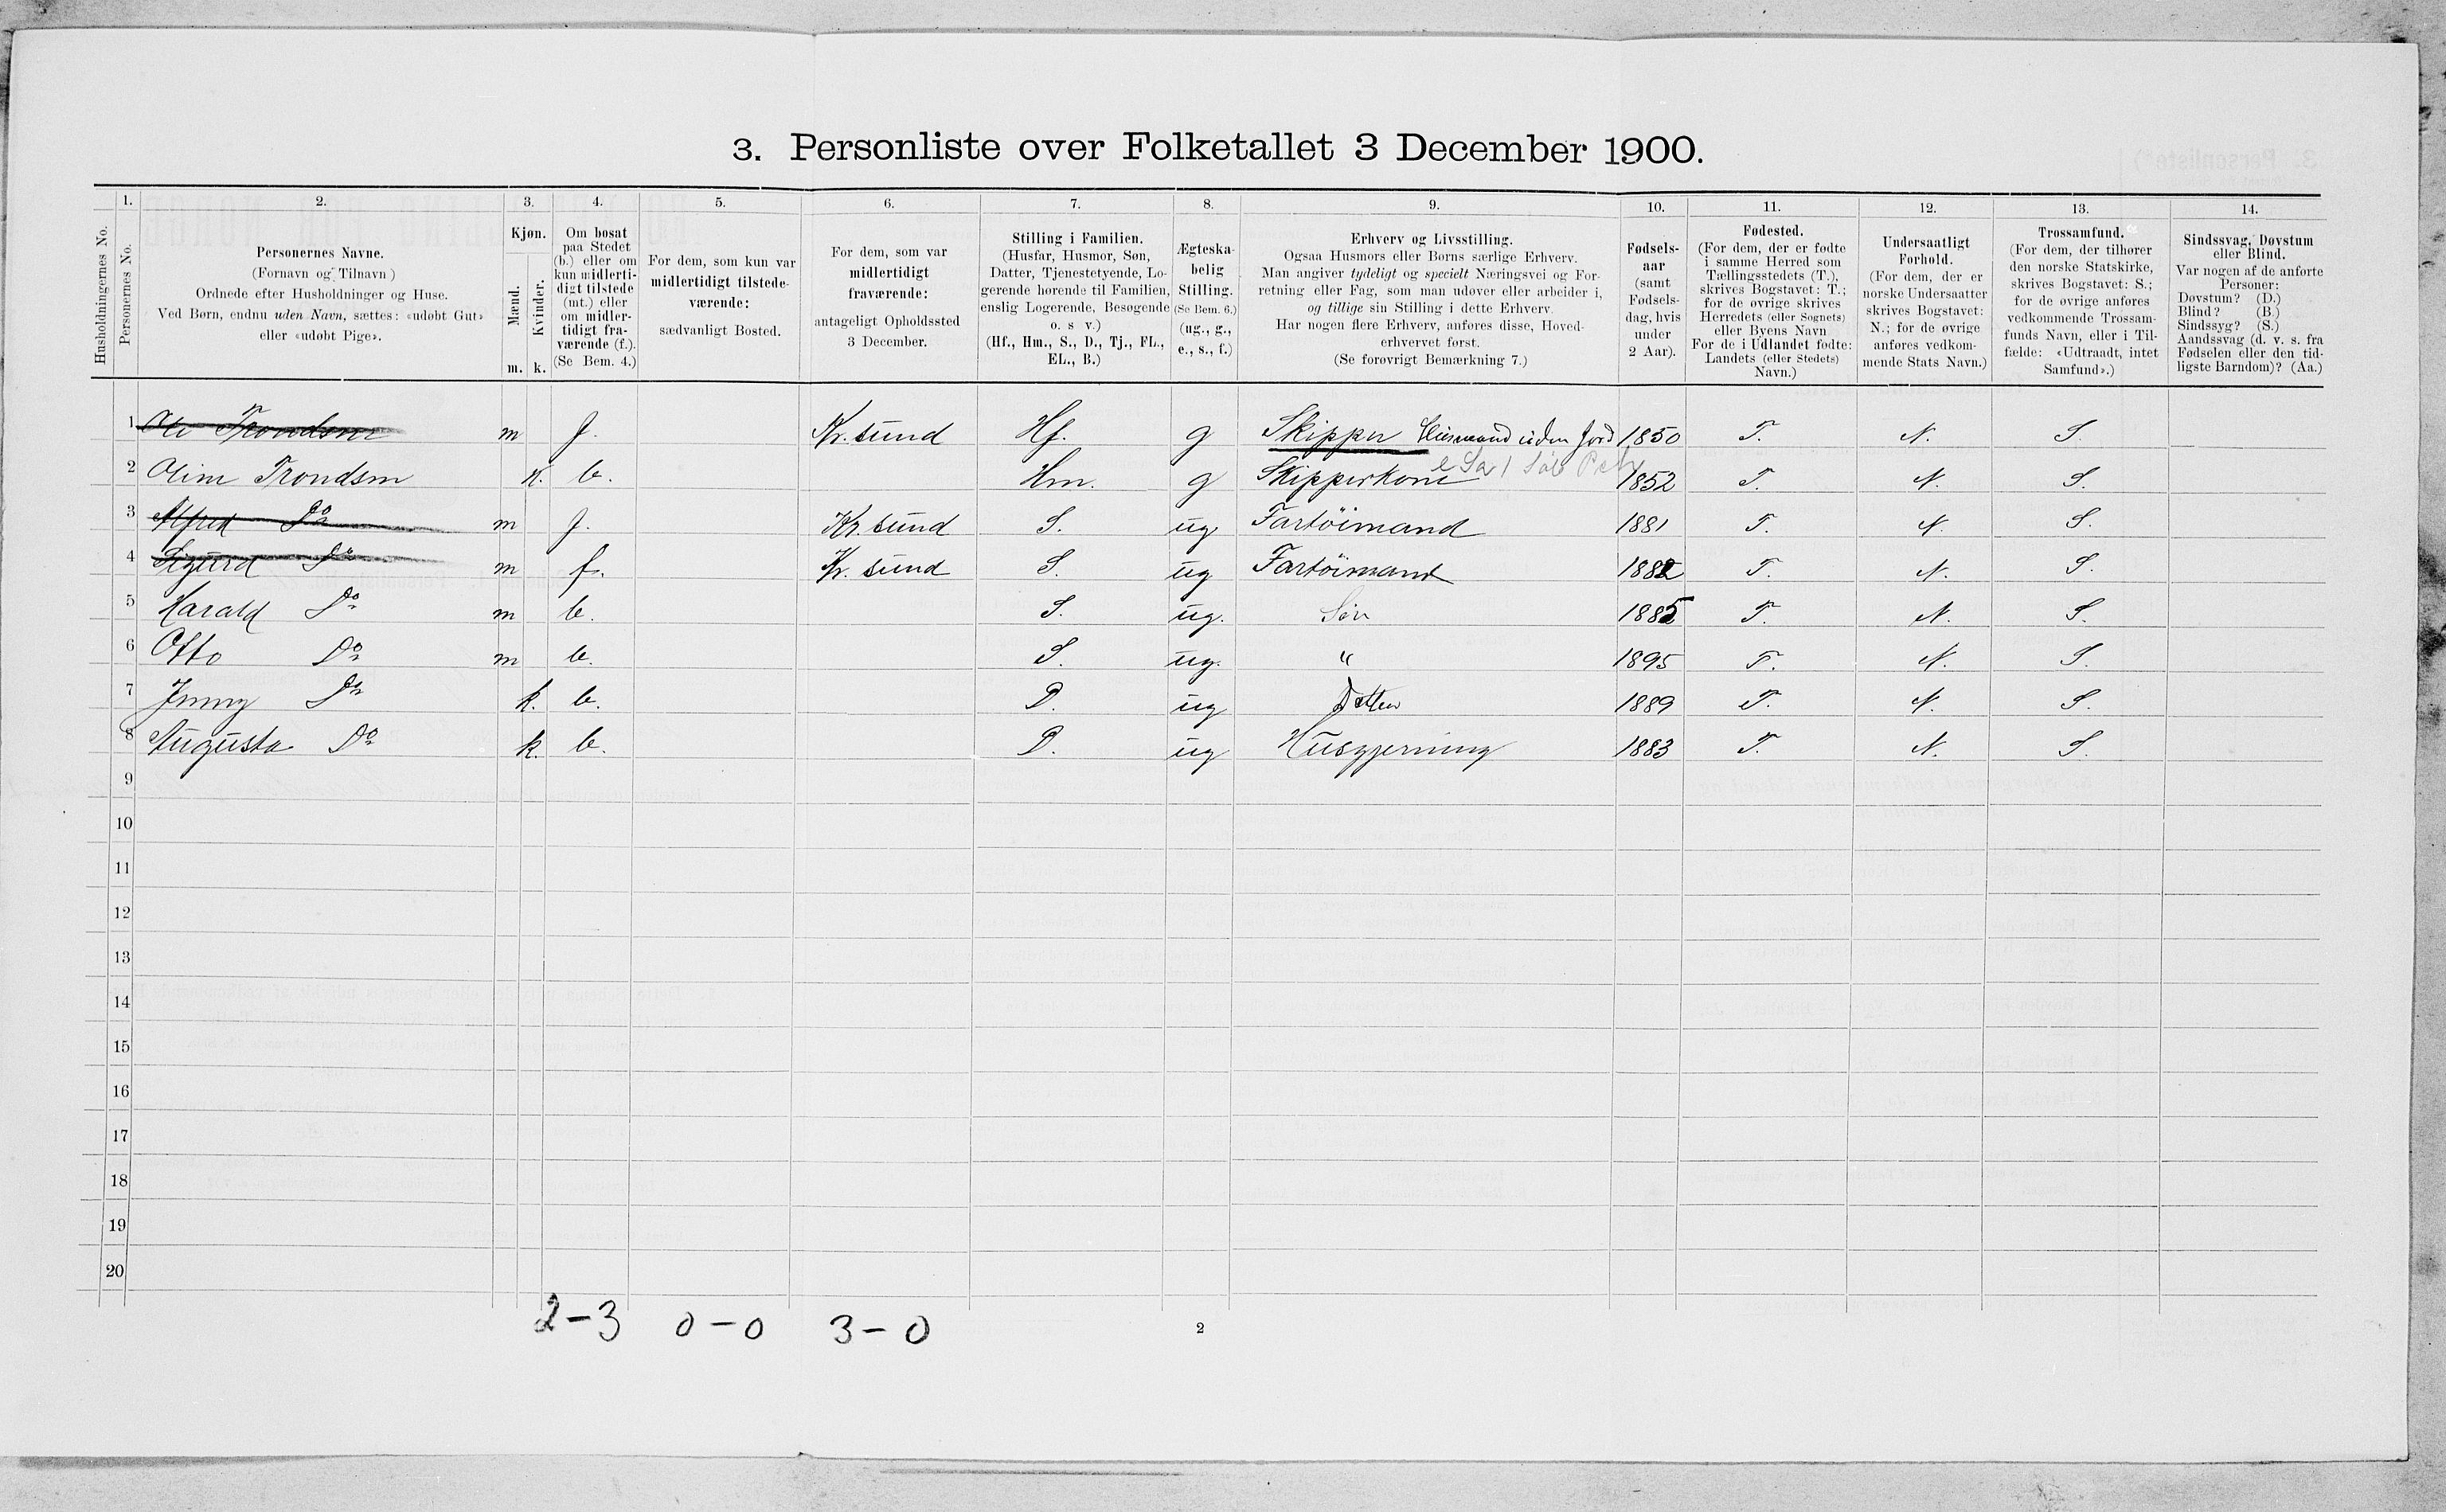 3. Personliste over Folketallet 3 December 1900.
Husholdningernes No.
1. Personernes No.
2. Personernes Navne.
(Fornavn og Tilnavn)
Ordnede efter Husholdninger og Huse.
Ved Børn, endnu uden Navn, sættes: «udøbt Gut»
eller «udøbt Pige».
3. Kjøn.
Mænd. m.
Kvinder. k.
4. Om bosat
paa Stedet
(b.) eller om
kun midlerti-
digt tilstede
(mt.) eller
om midler-
tidigt fra-
værende (f.).
(Se Bem. 4.)
5. For dem, som kun var
midlertidigt tilstede-
værende:
sædvanligt Bosted.
6. For dem, som var
midlertidigt
fraværende:
antageligt Opholdssted
3 December.
7. Stilling i Familien.
(Husfar, Husmor, Søn,
Datter, Tjenestetyende, Lo-
gerende hørende til Familien,
enslig Logerende, Besøgende
o. s v.)
(Hf., Hm., S., D., Tj., FL.,
EL., B.)
8. Ægteska-
belig
Stilling.
(Se Bem. 6.)
(ug., g.,
e., s., f.)
9. Erhverv og Livsstilling.
Ogsaa Husmors eller Børns særlige Erhverv.
Man angiver tydeligt og specielt Næringsvei og For-
retning eller Fag, som man udøver eller arbeider i,
og tillige sin Stilling i dette Erhverv.
Har nogen flere Erhverv, anføres disse, Hoved-
erhvervet først.
(Se forøvrigt Bemærkning 7.)
10. Fødsels-
aar
(samt
Fødsels-
dag, hvis
under
2 Aar).
11. Fødested.
(For dem, der er fødte
i samme Herred som
Tællingsstedets (T.),
skrives Bogstavet: T.;
for de øvrige skrives
Herredets (eller Sognets)
eller Byens Navn
For de i Udlandet fødte:
Landets (eller Stedets)
Navn.)
12. Undersaatligt
Forhold.
(For dem, der er
norske Undersaatter
skrives Bogstavet:
N.; for de øvrige
anføres vedkom-
mende Stats Navn.)
13. Trossamfund.
(For dem, der tilhører
den norske Statskirke,
skrives Bogstavet: S.;
for de øvrige anføres
vedkommende Trossam-
funds Navn, eller i Til-
fælde: «Udtraadt, intet
Samfund».)
14. Sindssvag, Døvstum
eller Blind.
Var nogen af de anførte
Personer:
Døvstum? (D.)
Blind? (B.)
Sindssyg? (S.)
Aandssvag (d. v. s. fra
Fødselen eller den tid-
ligste Barndom)? (Aa.)
1 Ole Trondsen m f. Kr. sund Hf. g Skipper Husmand uden Jord 1850 T. N. S.
2 Oline Trondsen k. b. Hm. g Skipperkone 1852 T. N. S.
3 Alfred Do m f. Kr. sund S. ug Fartöimand 1881 T. N. S.
4 Sigurd Do m f. Kr. sund S. ug Fartöimand 1882 T. N. S.
5 Harald Do m b. S. ug. Søn 1885 T. N. S.
6 Otto Do m b. S. ug. " 1895 T. N. S.
7 Jenny Do k. b. D. ug Datter 1889 T. N. S.
8 Augusta Do k. b. D. ug Husgjerning 1883 T. N. S.
9
10
11
12
13
14
15
16
17
18
19
20
2-3 0-0 3-0
2